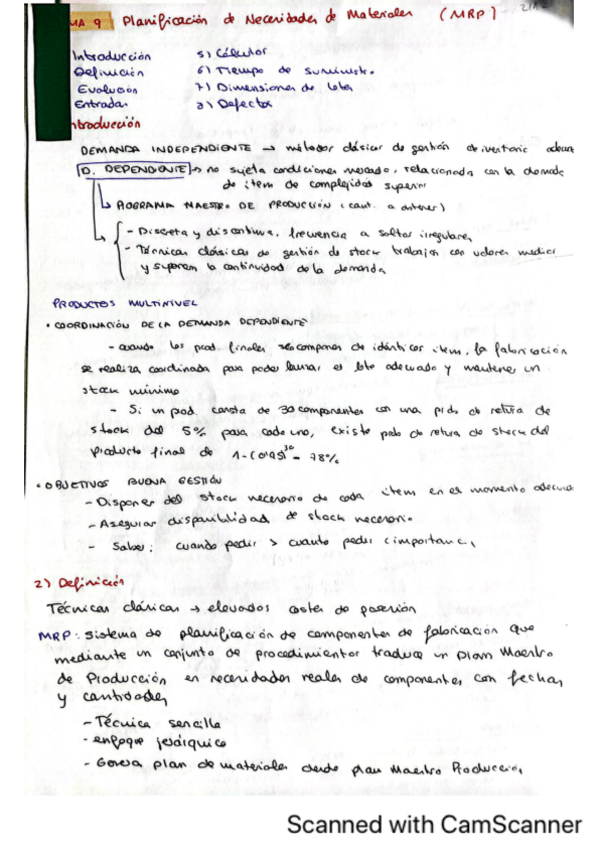 MA 9 Planificación de Necesidades de Materiales (MRP)
Introducción 5) Cálculos
Definición 6) Tiempo de Suministro
Evolución 7) Dimensiones de lotes
Entradas 8) Defectos
Introducción
DEMANDA INDEPENDIENTE → métodos clásicos de gestión de inventario adecua
D. DEPENDIENTE → no sujeta condiciones mercado, relacionada con la demada
de ítem de complejidad superior
PROGRAMA MAESTRO DE PRODUCCIÓN (cant. a obtener)
- Discreta y discontinua, frecuencia a saltos irregulares
- Técnicas clásicas de gestión de stock trabajan con valores medios
y suponen la continuidad de la demanda
PRODUCTOS MULTINIVEL
• COORDINACIÓN DE LA DEMANDA DEPENDIENTE
- cuando los prod. finales se componen de idénticos ítem, la fabricación
se realiza coordinada para poder lanzar el lote adecuado y mantener un
stock mínimo
- Si un prod. consta de 30 componentes con una prob de rotura de
stock del 5% para cada uno, existe prob de rotura de stock del
producto final de 1-(0,95)³⁰ = 78%
• OBJETIVOS BUENA GESTIÓN
- Disponer del stock necesario de cada ítem en el momento adecua
- Asegurar disponibilidad de stock necesario
- Saber: cuando pedir > cuanto pedir (importanc.)
2) Definición
Técnicas clásicas → elevados costes de posesión
MRP: sistema de planificación de componentes de fabricación que
mediante un conjunto de procedimientos traduce un Plan Maestro
de Producción en necesidades reales de componentes con fechas
y cantidades
- Técnica sencilla
- enfoque jerárquico
- Genera plan de materiales desde plan Maestro Producción
Scanned with CamScanner